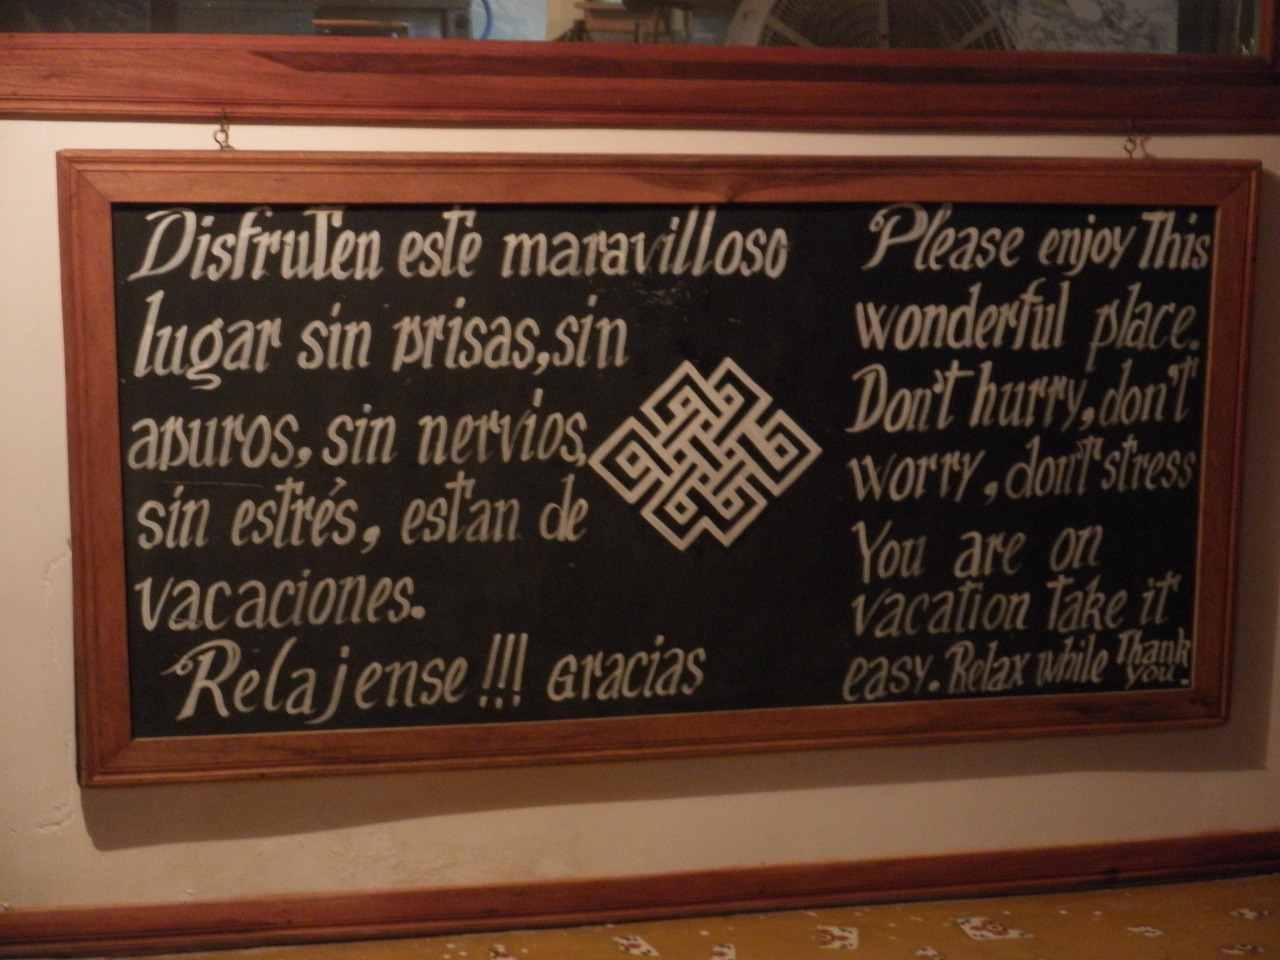 Disfruten este maravilloso
lugar sin prisas, sin
apuros, sin nervios,
sin estrés, estan de
vacaciones.
Relajense !!! Gracias
Please enjoy This
wonderful place.
Don't hurry, don't
worry, don't stress
You are on
vacation take it
easy. Relax while Thank
you.